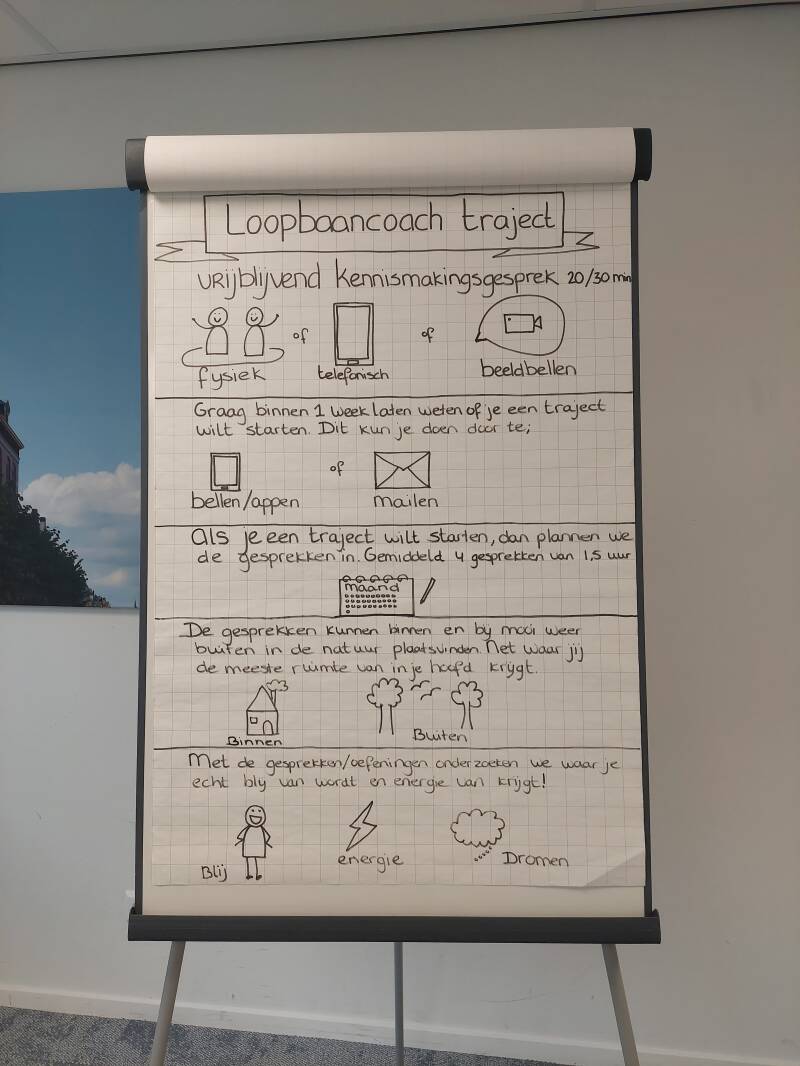 Loopbaancoach traject
vrijblijvend kennismakingsgesprek 20/30 min
of
of
fysiek
telefonisch
beeldbellen
Graag binnen 1 week laten weten of je een traject
wilt starten. Dit kun je doen door te;
of
bellen/appen
mailen
Als je een traject wilt starten, dan plannen we
de gesprekken in. Gemiddeld 4 gesprekken van 1,5 uur
maand
De gesprekken kunnen binnen en bij mooi weer
buiten in de natuur plaatsvinden. Net waar jij
de meeste ruimte van in je hoofd krijgt.
Binnen
Buiten
Met de gesprekken/oefeningen onderzoeken we waar je
echt blij van wordt en energie van krijgt!
Blij
energie
Dromen